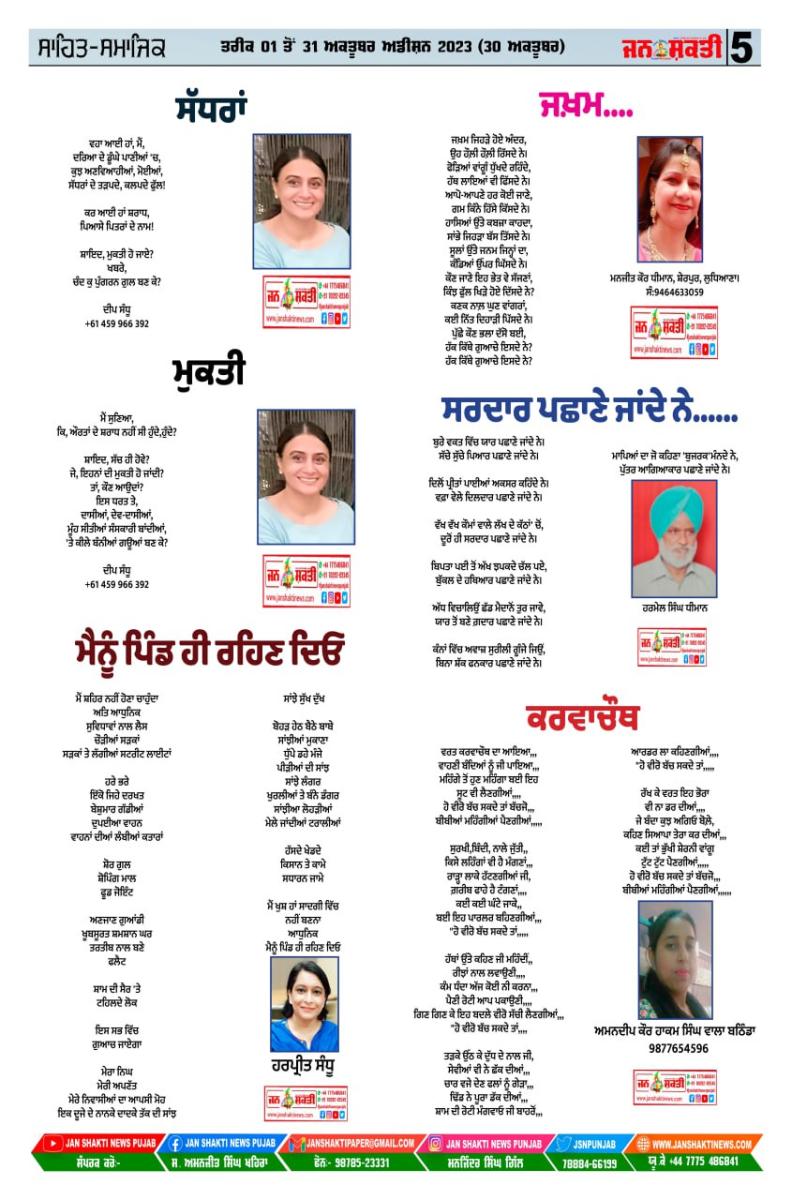 ਸਾਹਿਤ-ਸਮਾਜਿਕ
ਤਰੀਕ 01 ਤੋਂ 31 ਅਕਤੂਬਰ ਅਡੀਸ਼ਨ 2023 (30 ਅਕਤੂਬਰ)
ਜਨ ਸ਼ਕਤੀ 5
ਸੱਧਰਾਂ
ਵਹਾ ਆਈ ਹਾਂ, ਮੈਂ,
ਦਰਿਆ ਦੇ ਡੂੰਘੇ ਪਾਣੀਆਂ 'ਚ,
ਕੁਝ ਅਣਵਿਆਹੀਆਂ, ਮੋਈਆਂ,
ਸੱਧਰਾਂ ਦੇ ਤੜਪਦੇ, ਕਲਪਦੇ ਫੁੱਲ!
ਕਰ ਆਈ ਹਾਂ ਸ਼ਰਾਧ,
ਪਿਆਸੇ ਪਿਤਰਾਂ ਦੇ ਨਾਮ!
ਸ਼ਾਇਦ, ਮੁਕਤੀ ਹੋ ਜਾਏ?
ਖਬਰੇ,
ਚੰਦ ਕੁ ਪੁੰਗਰਨ ਗੁਲ ਬਣ ਕੇ?
ਦੀਪ ਸੰਧੂ
+61 459 966 392
ਮੁਕਤੀ
ਮੈਂ ਸੁਣਿਆ,
ਕਿ, ਔਰਤਾਂ ਦੇ ਸ਼ਰਾਧ ਨਹੀਂ ਸੀ ਹੁੰਦੇ,ਹੁੰਦੇ?
ਸ਼ਾਇਦ, ਸੱਚ ਹੀ ਹੋਵੇ?
ਜੇ, ਇਹਨਾਂ ਦੀ ਮੁਕਤੀ ਹੋ ਜਾਂਦੀ?
ਤਾਂ, ਕੌਣ ਆਉਂਦਾ?
ਇਸ ਧਰਤ ਤੇ,
ਦਾਸੀਆਂ, ਦੇਵ-ਦਾਸੀਆਂ,
ਮੂੰਹ ਸੀਤੀਆਂ ਸੰਸਕਾਰੀ ਬਾਂਦੀਆਂ,
'ਤੇ ਕੀਲੇ ਬੰਨੀਆਂ ਗਊਆਂ ਬਣ ਕੇ?
ਦੀਪ ਸੰਧੂ
+61 459 966 392
ਮੈਨੂੰ ਪਿੰਡ ਹੀ ਰਹਿਣ ਦਿਓ
ਮੈਂ ਸ਼ਹਿਰ ਨਹੀਂ ਹੋਣਾ ਚਾਹੁੰਦਾ
ਅਤਿ ਆਧੁਨਿਕ
ਸੁਵਿਧਾਵਾਂ ਨਾਲ ਲੈਸ
ਚੌੜੀਆਂ ਸੜਕਾਂ
ਸੜਕਾਂ ਤੇ ਲੱਗੀਆਂ ਸਟਰੀਟ ਲਾਈਟਾਂ
ਹਰੇ ਭਰੇ
ਇੱਕੋ ਜਿਹੇ ਦਰਖਤ
ਬੇਸ਼ੁਮਾਰ ਗੱਡੀਆਂ
ਦੁਪਈਆ ਵਾਹਨ
ਵਾਹਨਾਂ ਦੀਆਂ ਲੰਬੀਆਂ ਕਤਾਰਾਂ
ਸ਼ੋਰ ਗੁਲ
ਸ਼ੋਪਿੰਗ ਮਾਲ
ਫੂਡ ਜੋਇੰਟ
ਅਣਜਾਣ ਗੁਆਂਢੀ
ਖੂਬਸੂਰਤ ਸ਼ਮਸ਼ਾਨ ਘਰ
ਤਰਤੀਬ ਨਾਲ ਬਣੇ
ਫਲੈਟ
ਸ਼ਾਮ ਦੀ ਸੈਰ 'ਤੇ
ਟਹਿਲਦੇ ਲੋਕ
ਇਸ ਸਭ ਵਿੱਚ
ਗੁਆਚ ਜਾਏਗਾ
ਮੇਰਾ ਨਿਘ
ਮੇਰੀ ਅਪਣੱਤ
ਮੇਰੇ ਨਿਵਾਸੀਆਂ ਦਾ ਆਪਸੀ ਮੋਹ
ਇਕ ਦੂਜੇ ਦੇ ਨਾਨਕੇ ਦਾਦਕੇ ਤੱਕ ਦੀ ਸਾਂਝ
ਸਾਂਝੇ ਸੁੱਖ ਦੁੱਖ
ਬੋਹੜ ਹੇਠ ਬੈਠੇ ਬਾਬੇ
ਸਾਂਝੀਆਂ ਮੁਕਾਣਾ
ਧੁੱਪੇ ਡਹੇ ਮੰਜੇ
ਪੀੜੀਆਂ ਦੀ ਸਾਂਝ
ਸਾਂਝੇ ਲੰਗਰ
ਖੁਰਲੀਆਂ ਤੇ ਬੰਨੇ ਡੰਗਰ
ਸਾਂਝੀਆ ਲੋਹੜੀਆਂ
ਮੇਲੇ ਜਾਂਦੀਆਂ ਟਰਾਲੀਆਂ
ਹੱਸਦੇ ਖੇਡਦੇ
ਕਿਸਾਨ ਤੇ ਕਾਮੇ
ਸਧਾਰਨ ਜਾਮੇ
ਮੈਂ ਖੁਸ਼ ਹਾਂ ਸਾਦਗੀ ਵਿੱਚ
ਨਹੀਂ ਬਣਨਾ
ਆਧੁਨਿਕ
ਮੈਨੂੰ ਪਿੰਡ ਹੀ ਰਹਿਣ ਦਿਓ
ਹਰਪ੍ਰੀਤ ਸੰਧੂ
ਜਖ਼ਮ....
ਜਖ਼ਮ ਜਿਹੜੇ ਹੋਏ ਅੰਦਰ,
ਉਹ ਹੌਲੀ ਹੌਲੀ ਰਿੱਸਦੇ ਨੇ।
ਫੋੜਿਆਂ ਵਾਂਗੂੰ ਧੁੱਖਦੇ ਰਹਿੰਦੇ,
ਹੱਥ ਲਾਇਆਂ ਵੀ ਫਿੱਸਦੇ ਨੇ।
ਆਪੋ-ਆਪਣੇ ਹਰ ਕੋਈ ਜਾਣੇ,
ਗਮ ਕਿੰਨੇ ਹਿੱਸੇ ਕਿੱਸਦੇ ਨੇ।
ਹਾਸਿਆਂ ਉਤੇ ਕਬਜ਼ਾ ਕਾਹਦਾ,
ਸਾਂਭੇ ਜਿਹੜਾ ਬੱਸ ਤਿੱਸਦੇ ਨੇ।
ਸੂਲਾਂ ਉਤੇ ਜਨਮ ਜਿਨ੍ਹਾਂ ਦਾ,
ਕੰਡਿਆਂ ਉੱਪਰ ਘਿੱਸਦੇ ਨੇ।
ਕੌਣ ਜਾਣੇ ਇਹ ਭੇਤ ਵੇ ਸੱਜਣਾਂ,
ਕਿੰਝ ਫੁੱਲ ਖਿੜੇ ਹੋਏ ਦਿੱਸਦੇ ਨੇ?
ਕਣਕ ਨਾਲ਼ ਘੁਣ ਵਾਂਗਰਾਂ,
ਕਈ ਨਿੱਤ ਦਿਹਾੜੀ ਪਿੱਸਦੇ ਨੇ।
ਪੁੱਛੇ ਕੌਣ ਭਲਾ ਦੱਸੋ ਬਈ,
ਹੱਕ ਕਿੱਥੇ ਗੁਆਚੇ ਇਸਦੇ ਨੇ?
ਹੱਕ ਕਿੱਥੇ ਗੁਆਚੇ ਇਸਦੇ ਨੇ?
ਮਨਜੀਤ ਕੌਰ ਧੀਮਾਨ, ਸ਼ੇਰਪੁਰ, ਲੁਧਿਆਣਾ।
ਸੰ:9464633059
ਸਰਦਾਰ ਪਛਾਣੇ ਜਾਂਦੇ ਨੇ......
ਬੁਰੇ ਵਕਤ ਵਿੱਚ ਯਾਰ ਪਛਾਣੇ ਜਾਂਦੇ ਨੇ।
ਸੱਚੇ ਸੁੱਚੇ ਪਿਆਰ ਪਛਾਣੇ ਜਾਂਦੇ ਨੇ।
ਦਿਲੋਂ ਪ੍ਰੀਤਾਂ ਪਾਈਆਂ ਅਕਸਰ ਕਹਿੰਦੇ ਨੇ।
ਵਫ਼ਾ ਵੇਲੇ ਦਿਲਦਾਰ ਪਛਾਣੇ ਜਾਂਦੇ ਨੇ।
ਵੱਖ ਵੱਖ ਕੌਮਾਂ ਵਾਲੇ ਲੱਖ ਦੇ ਕੱਠਾਂ ਚੋਂ,
ਦੂਰੋਂ ਹੀ ਸਰਦਾਰ ਪਛਾਣੇ ਜਾਂਦੇ ਨੇ।
ਬਿਪਤਾ ਪਈ ਤੋਂ ਅੱਖ ਝਪਕਦੇ ਚੱਲ ਪਏ,
ਬੁੱਕਲ ਦੇ ਹਥਿਆਰ ਪਛਾਣੇ ਜਾਂਦੇ ਨੇ।
ਅੱਧ ਵਿਚਾਲਿਉਂ ਛੱਡ ਮੈਦਾਨੋਂ ਤੁਰ ਜਾਵੇ,
ਯਾਰ ਤੋਂ ਬਣੇ ਗ਼ਦਾਰ ਪਛਾਣੇ ਜਾਂਦੇ ਨੇ।
ਕੰਨਾਂ ਵਿੱਚ ਅਵਾਜ਼ ਸੁਰੀਲੀ ਗੂੰਜੇ ਜਿਉਂ,
ਬਿਨਾ ਸ਼ੱਕ ਫਨਕਾਰ ਪਛਾਣੇ ਜਾਂਦੇ ਨੇ।
ਮਾਪਿਆਂ ਦਾ ਜੋ ਕਹਿਣਾ 'ਬੁਜਰਕ'ਮੰਨਦੇ ਨੇ,
ਪੁੱਤਰ ਆਗਿਆਕਾਰ ਪਛਾਣੇ ਜਾਂਦੇ ਨੇ।
ਹਰਮੇਲ ਸਿੰਘ ਧੀਮਾਨ
ਕਰਵਾਚੌਥ
ਵਰਤ ਕਰਵਾਚੌਥ ਦਾ ਆਇਆ,,,
ਵਾਹਣੀ ਬੰਦਿਆਂ ਨੂੰ ਜੀ ਪਾਇਆ,,,
ਮਹਿੰਗੇ ਤੋਂ ਹੁਣ ਮਹਿੰਗਾ ਬਈ ਇਹ
ਸੂਟ ਵੀ ਲੈਣਗੀਆਂ,,,,
ਹੋ ਵੀਰੋ ਬੱਚ ਸਕਦੇ ਤਾਂ ਬੱਚਜੋ,,,
ਬੀਬੀਆਂ ਮਹਿੰਗੀਆਂ ਪੈਣਗੀਆਂ,,,,,
ਸੁਰਖੀ,ਬਿੰਦੀ, ਨਾਲੇ ਜੁੱਤੀ,,,
ਕਿਸੇ ਲਹਿੰਗਾਂ ਵੀ ਹੈ ਮੰਗਣਾਂ,,,
ਰਾਤ੍ਹਾ ਲਾਕੇ ਹੱਟਣਗੀਆਂ ਜੀ,
ਗ਼ਰੀਬ ਫਾਹੇ ਹੈ ਟੰਗਣਾਂ,,,,
ਕਈ ਕਈ ਘੰਟੇ ਜਾਕੇ,,
ਬਈ ਇਹ ਪਾਰਲਰ ਬਹਿਣਗੀਆਂ,,,
"ਹੋ ਵੀਰੋ ਬੱਚ ਸਕਦੇ ਤਾਂ,,,,,
ਹੱਥਾਂ ਉੱਤੇ ਕਹਿਣ ਜੀ ਮਹਿੰਦੀਂ,,
ਰੀਝਾਂ ਨਾਲ ਲਵਾਉਣੀ,,,,
ਕੰਮ ਧੰਦਾ ਅੱਜ ਕੋਈ ਨੀ ਕਰਨਾ,,,
ਪੈਣੀ ਰੋਟੀ ਆਪ ਪਕਾਉਣੀ,,,,
ਗਿਣ ਗਿਣ ਕੇ ਇਹ ਬਦਲੇ ਵੀਰੋ ਸੱਚੀ ਲੈਣਗੀਆਂ,,,
"ਹੋ ਵੀਰੋ ਬੱਚ ਸਕਦੇ ਤਾਂ,,,,
ਤੜਕੇ ਉੱਠ ਕੇ ਦੁੱਧ ਦੇ ਨਾਲ ਜੀ,
ਸੇਵੀਆਂ ਵੀ ਨੇ ਛੱਕ ਦੀਆਂ,,,
ਚਾਰ ਵਜੇ ਦੇਣ ਫਲਾਂ ਨੂੰ ਗੇੜਾ,,,
ਢਿੱਡ ਨੇ ਪੂਰਾ ਡੱਕ ਦੀਆਂ,,,
ਸ਼ਾਮ ਦੀ ਰੋਟੀ ਮੰਗਵਾਓ ਜੀ ਬਾਹਰੋਂ,,,
ਆਰਡਰ ਲਾ ਕਹਿਣਗੀਆਂ,,,,
"ਹੋ ਵੀਰੋ ਬੱਚ ਸਕਦੇ ਤਾਂ,,,,,
ਰੱਖ ਕੇ ਵਰਤ ਇਹ ਭੋਰਾ
ਵੀ ਨਾ ਡਰ ਦੀਆਂ,,,,
ਜੇ ਬੰਦਾ ਕੁਝ ਅਗਿਓ ਬੋਲ਼ੇ,
ਕਹਿਣ ਸਿਆਪਾ ਤੇਰਾ ਕਰ ਦੀਆਂ,,,
ਕਈ ਤਾਂ ਭੁੱਖੀ ਸ਼ੇਰਨੀ ਵਾਂਗੂ
ਟੁੱਟ ਟੁੱਟ ਪੈਣਗੀਆਂ,,,,
ਹੋ ਵੀਰੋ ਬੱਚ ਸਕਦੇ ਤਾਂ ਬੱਚਜੋ,,,
ਬੀਬੀਆਂ ਮਹਿੰਗੀਆਂ ਪੈਣਗੀਆਂ,,,,,,
ਅਮਨਦੀਪ ਕੌਰ ਹਾਕਮ ਸਿੰਘ ਵਾਲਾ ਬਠਿੰਡਾ
9877654596
JAN SHAKTI NEWS PUJAB
JAN SHAKTI NEWS PUJAB
JANSHAKTIPAPER@GMAIL.COM
JAN SHAKTI NEWS PUNJAB
JSNPUNJAB
WWW.JANSHAKTINEWS.COM
ਸੰਪਰਕ ਕਰੋ:-
ਸ. ਅਮਨਜੀਤ ਸਿੰਘ ਖਹਿਰਾ
ਫੋਨ:- 98785-23331
ਮਨਜਿੰਦਰ ਸਿੰਘ ਗਿੱਲ
78884-66199
ਯੂ.ਕੇ +44 7775 486841